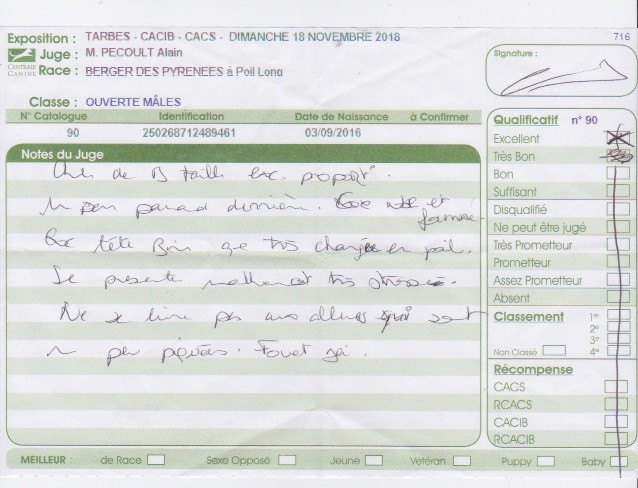 Exposition : TARBES - CACIB - CACS - DIMANCHE 18 NOVEMBRE 2018
716
Juge : M. PECOULT Alain
CENTRALE CANINE
Race : BERGER DES PYRENEES à Poil Long
Signature :
Classe : OUVERTE MÂLES
N° Catalogue Identification Date de Naissance à Confirmer
90 250268712489461 03/09/2016
Notes du Juge
de B taille exc. proport°.
Un peu panard derrière. et
formé
Exc tête Bien que très chargée en poil.
Se présente très stressé.
Ne se livre pas aux allures qui sont
un peu Fouet gai.
Qualificatif n° 90
Excellent
Très Bon
Bon
Suffisant
Disqualifié
Ne peut être jugé
Très Prometteur
Prometteur
Assez Prometteur
Absent
Classement 1er
2e
3e
Non Classé 4e
Récompense
CACS
RCACS
CACIB
RCACIB
MEILLEUR : de Race Sexe Opposé Jeune Vétéran Puppy Baby